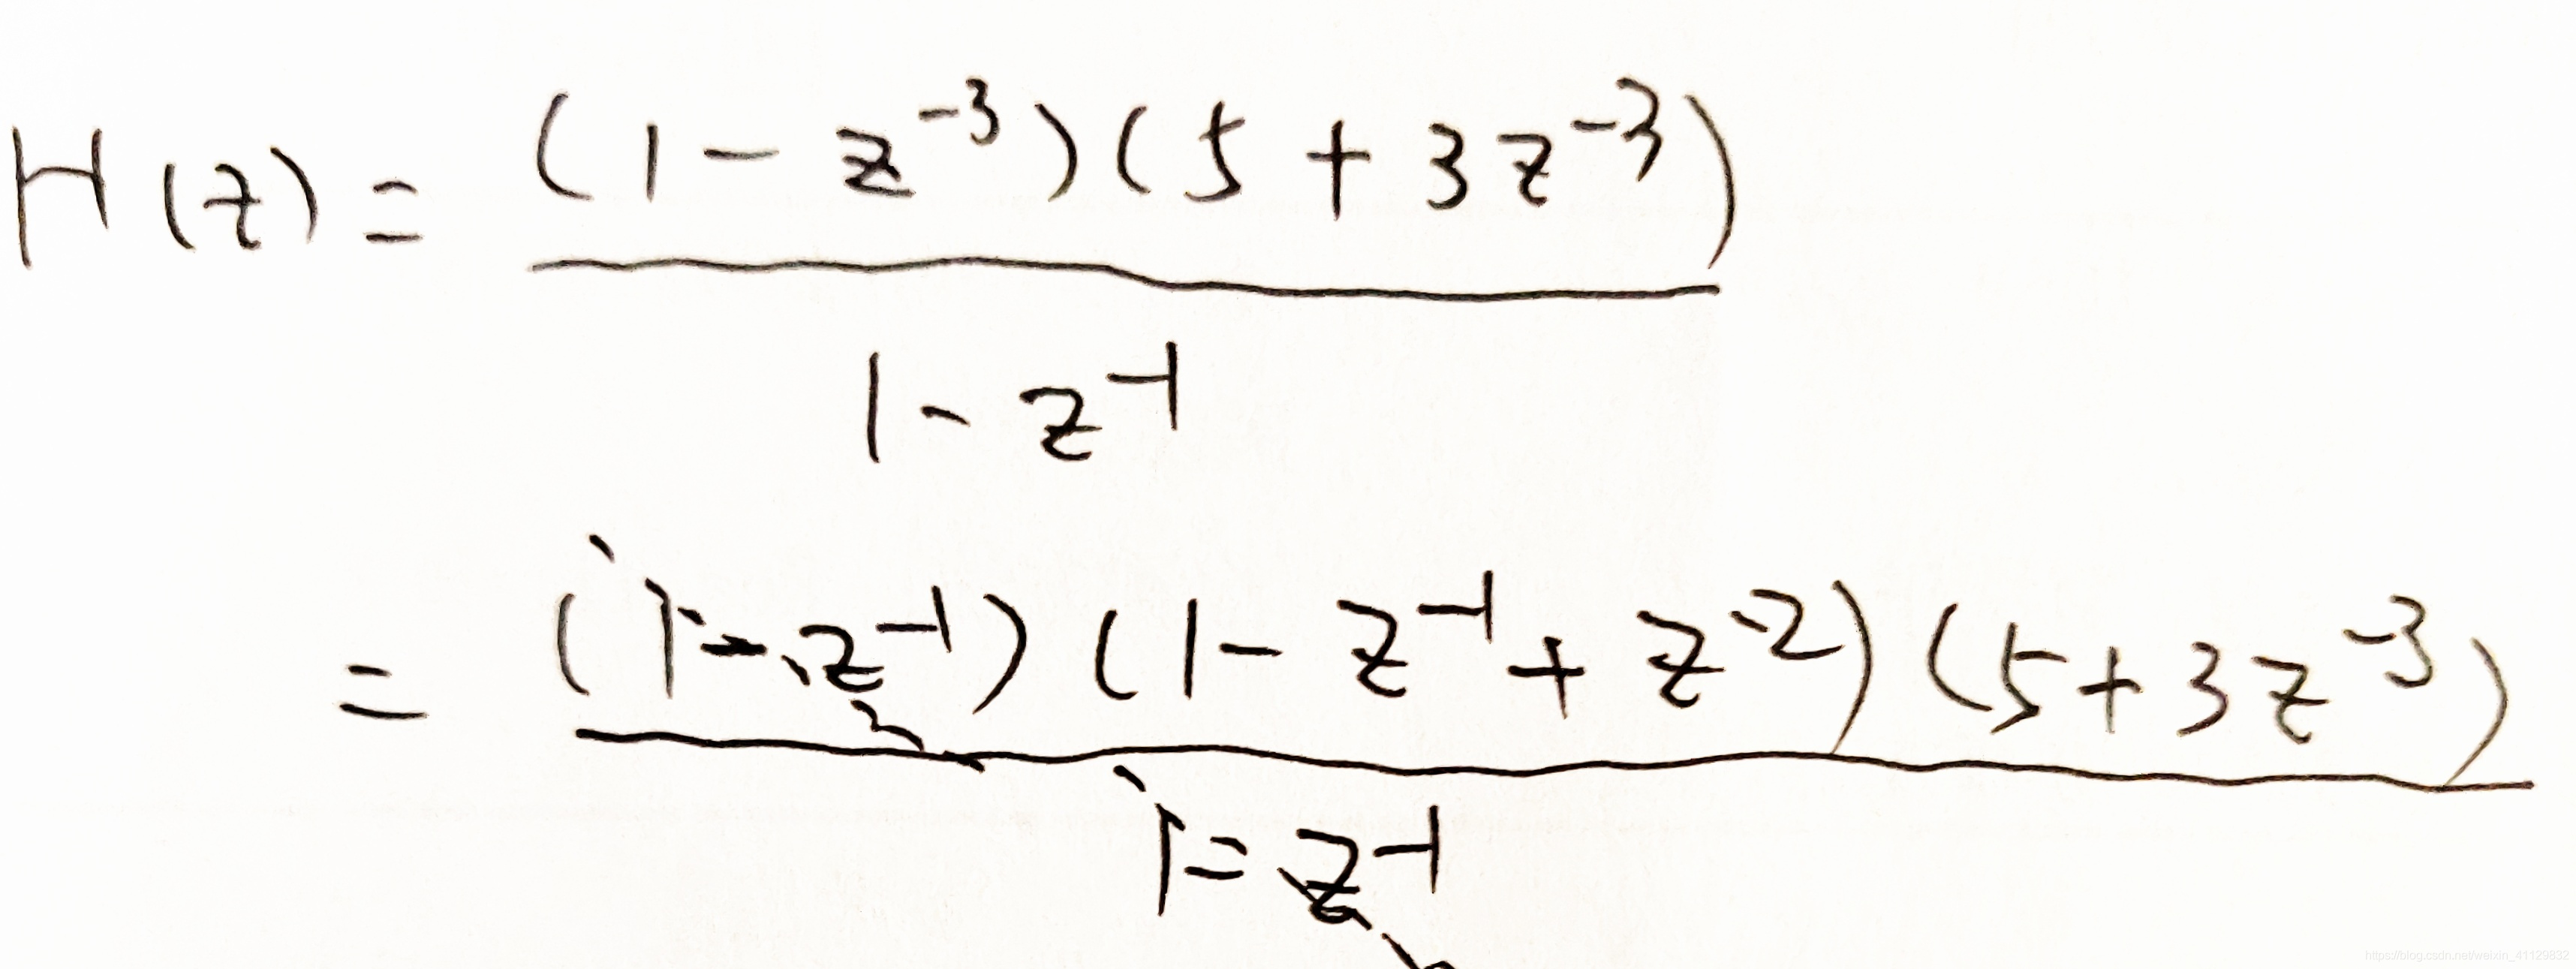 H(z) = (1 - z^-3)(5 + 3z^-3)
1 - z^-1
= (1 - z^-1)(1 - z^-1 + z^-2)(5 + 3z^-3)
1 - z^-1
https://blog.csdn.net/weixin_41129832